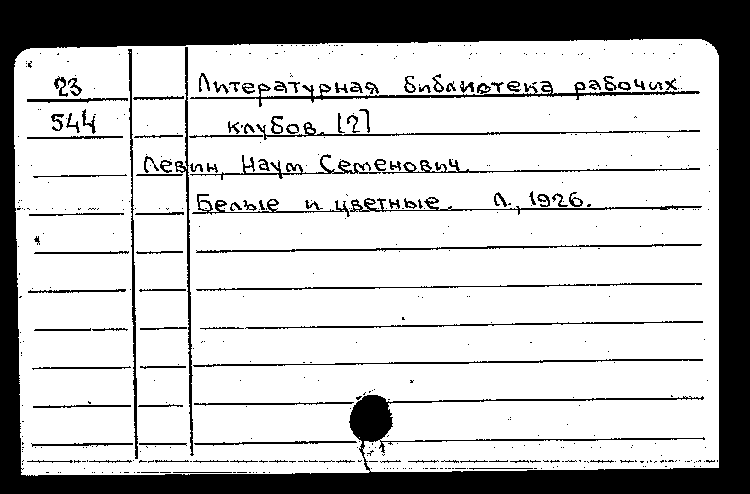 23 Литературная библиотека рабочих
544 клубов. [?]
Левин, Наум Семенович.
Белые и цветные. Л., 1926.